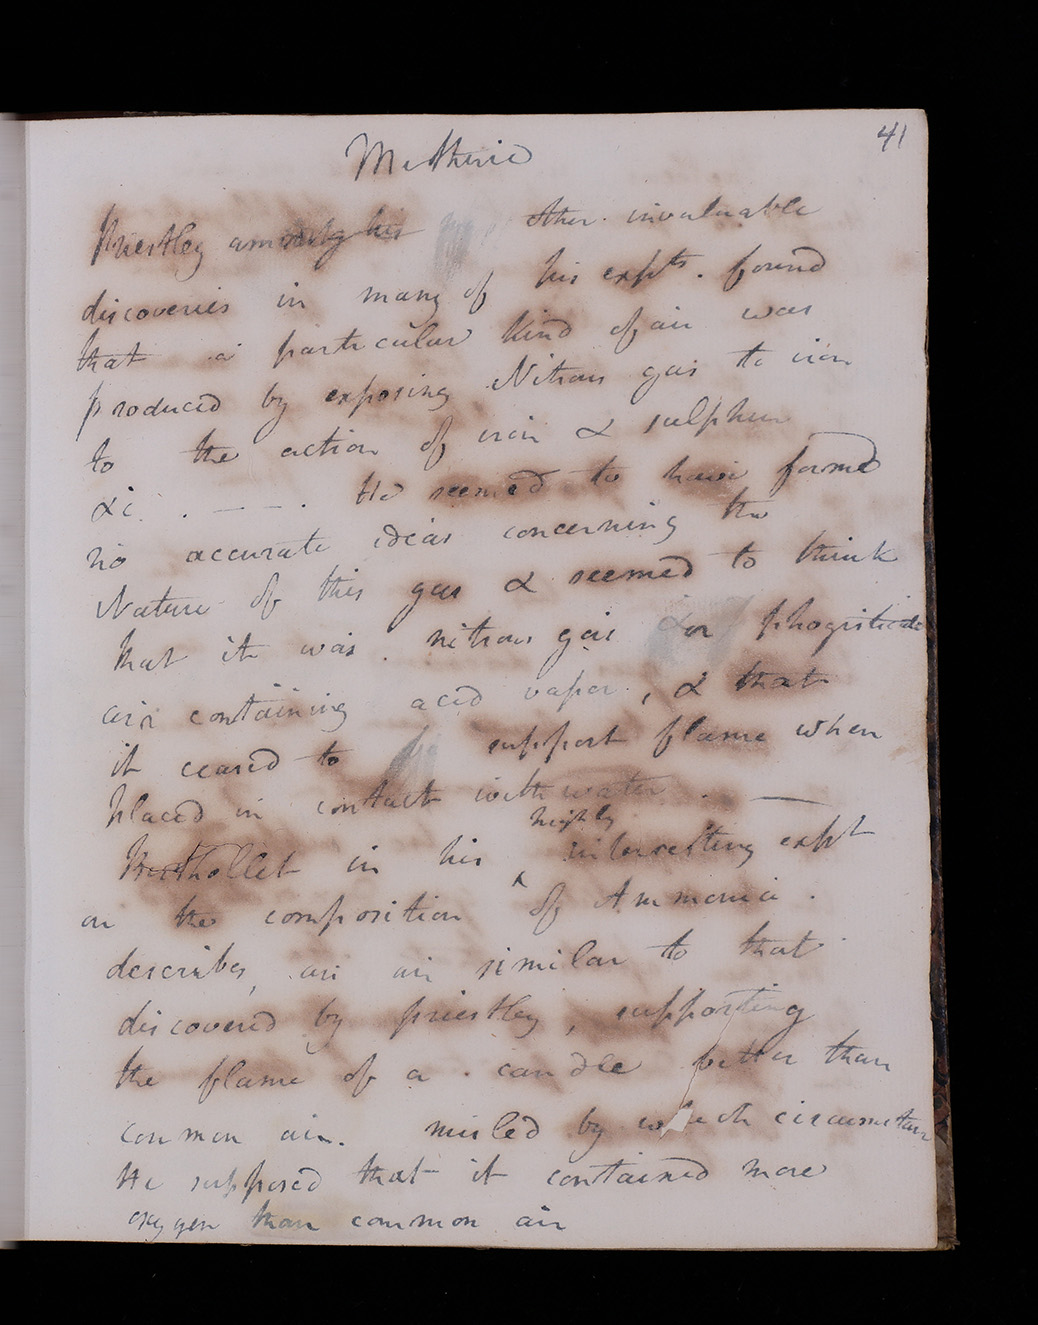 41
Metherie
Priestley among his other invaluable
discoveries in many of his expts. found
that a particular kind of air was
produced by exposing Nitrous gas to iron
to the action of iron & sulphur
&c. . —— . He seemed to have formed
no accurate ideas concerning the
Nature of this gas & seemed to think
that it was nitrous gas or phogisticate
air containing acid vapor, & that
it ceased to support flame when
placed in contact with water . —
highly
Berthollet in his ^ interesting expt
on the composition of Ammonia .
describes, an air similar to that
discovered by priestley, supporting
the flame of a candle better than
common air. misled by which circumstan
He supposed that it contained more
oxygen than common air